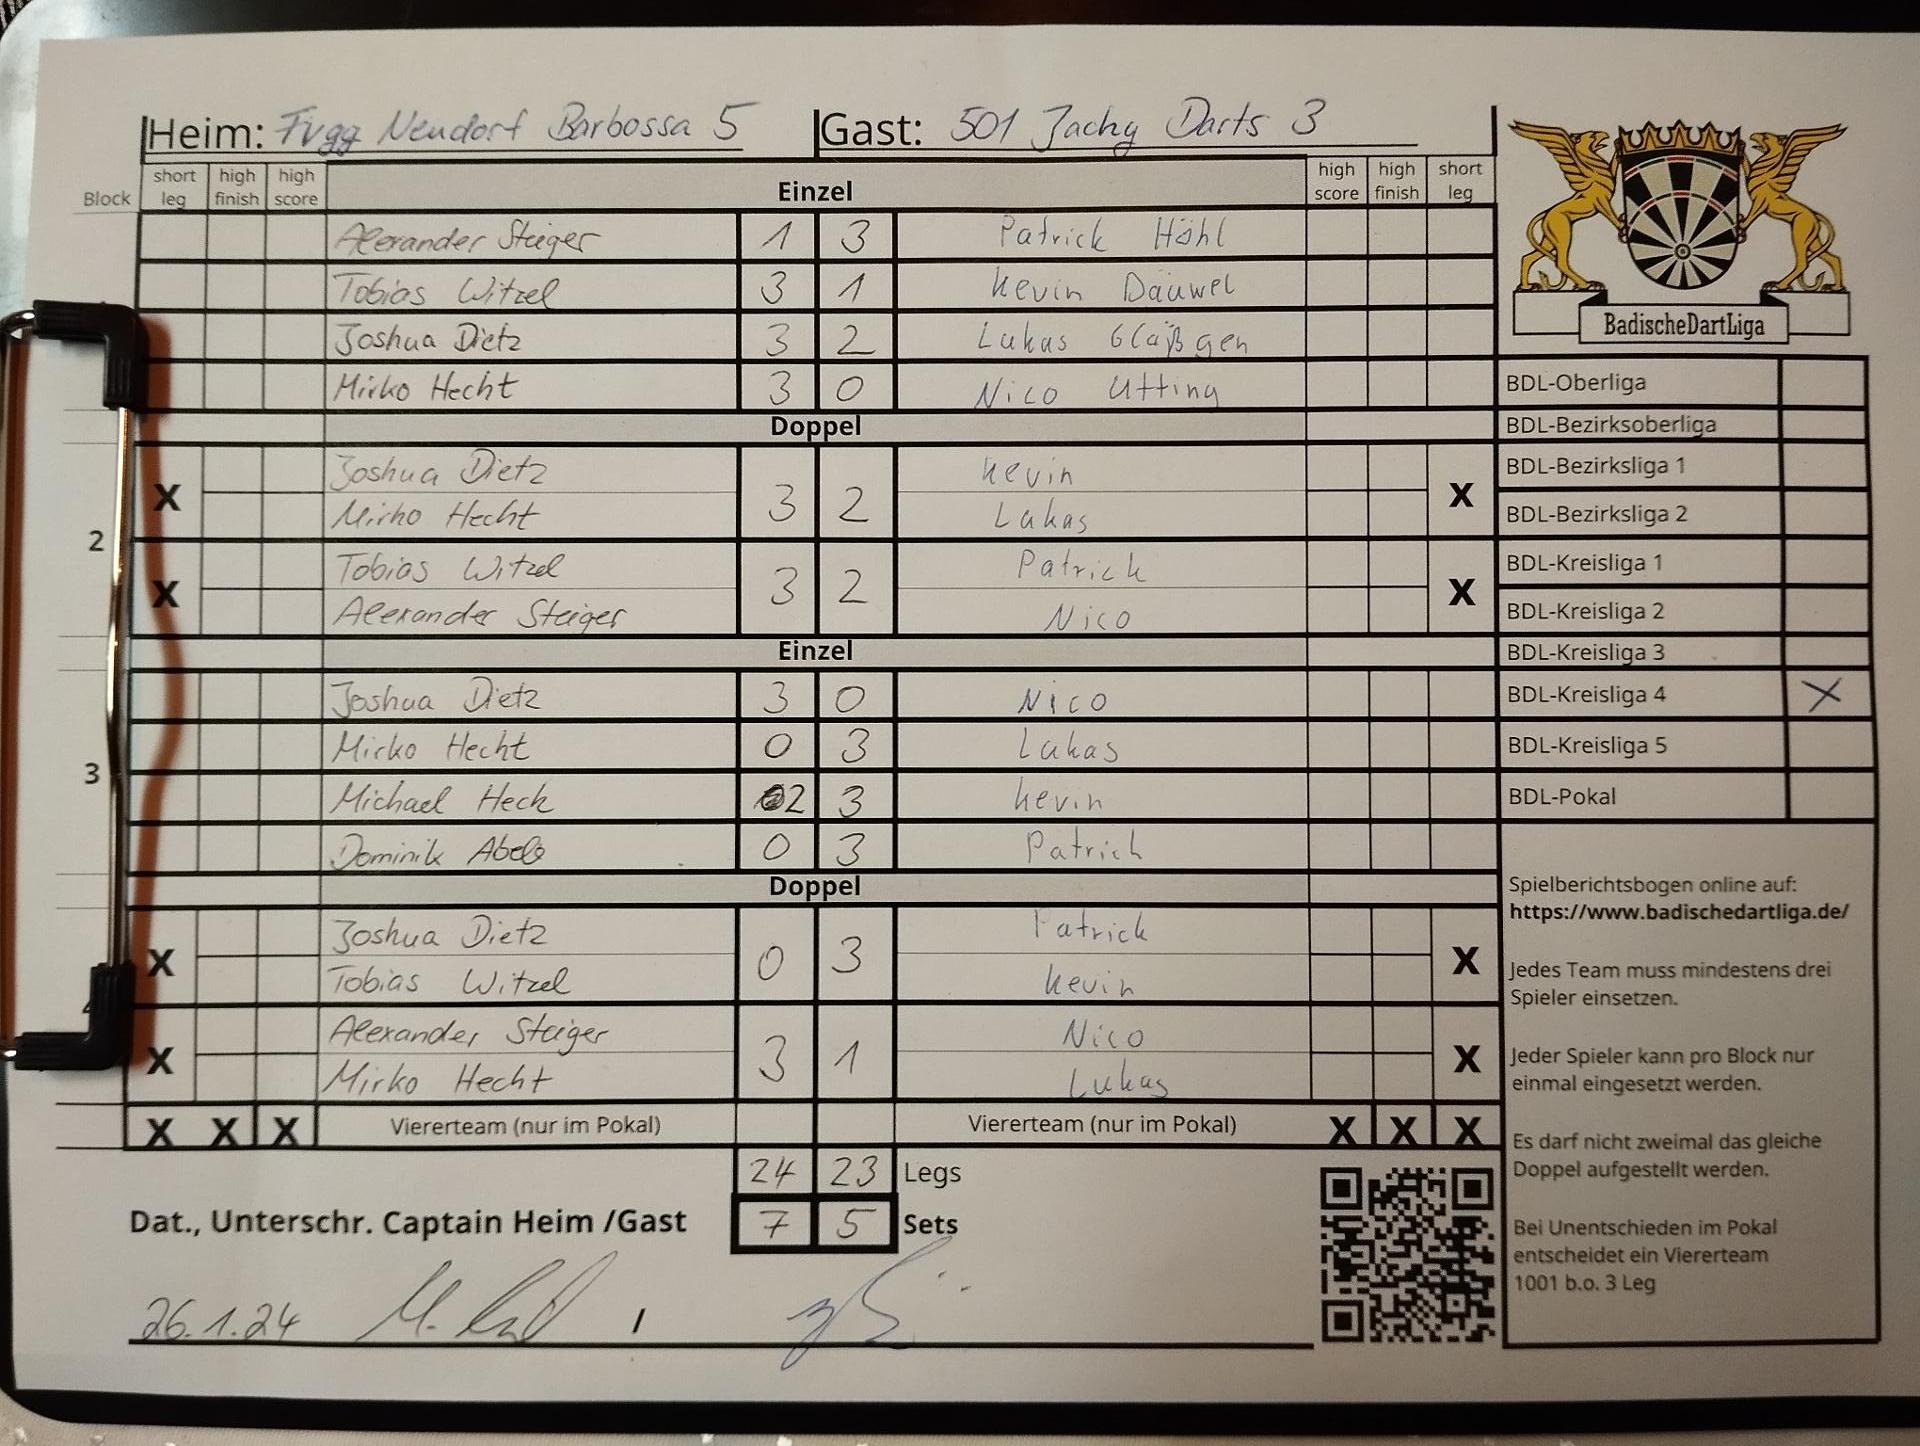 Heim: Fvgg Neudorf Barbossa 5 Gast: 501 Jachy Darts 3
Block short leg high finish high score Einzel high score high finish short leg
Alexander Steiger 1 3 Patrick Höhl
Tobias Witzel 3 1 Kevin Däuwel
Joshua Dietz 3 2 Lukas Gläßgen
Mirko Hecht 3 0 Nico Utting
Doppel
Joshua Dietz Kevin
X 3 2 X
Mirko Hecht Lukas
2
Tobias Witzel Patrick
X 3 2 X
Alexander Steiger Nico
Einzel
Joshua Dietz 3 0 Nico
Mirko Hecht 0 3 Lukas
3
Michael Heck 2 3 Kevin
Dominik Abele 0 3 Patrick
Doppel
Joshua Dietz Patrick
X 0 3 X
Tobias Witzel Kevin
Alexander Steiger Nico
X 3 1 X
Mirko Hecht Lukas
X X X Viererteam (nur im Pokal) Viererteam (nur im Pokal) X X X
24 23 Legs
Dat., Unterschr. Captain Heim /Gast 7 5 Sets
26.1.24 /
BadischeDartLiga
BDL-Oberliga
BDL-Bezirksoberliga
BDL-Bezirksliga 1
BDL-Bezirksliga 2
BDL-Kreisliga 1
BDL-Kreisliga 2
BDL-Kreisliga 3
BDL-Kreisliga 4 X
BDL-Kreisliga 5
BDL-Pokal
Spielberichtsbogen online auf:
https://www.badischedartliga.de/
Jedes Team muss mindestens drei
Spieler einsetzen.
Jeder Spieler kann pro Block nur
einmal eingesetzt werden.
Es darf nicht zweimal das gleiche
Doppel aufgestellt werden.
Bei Unentschieden im Pokal
entscheidet ein Viererteam
1001 b.o. 3 Leg